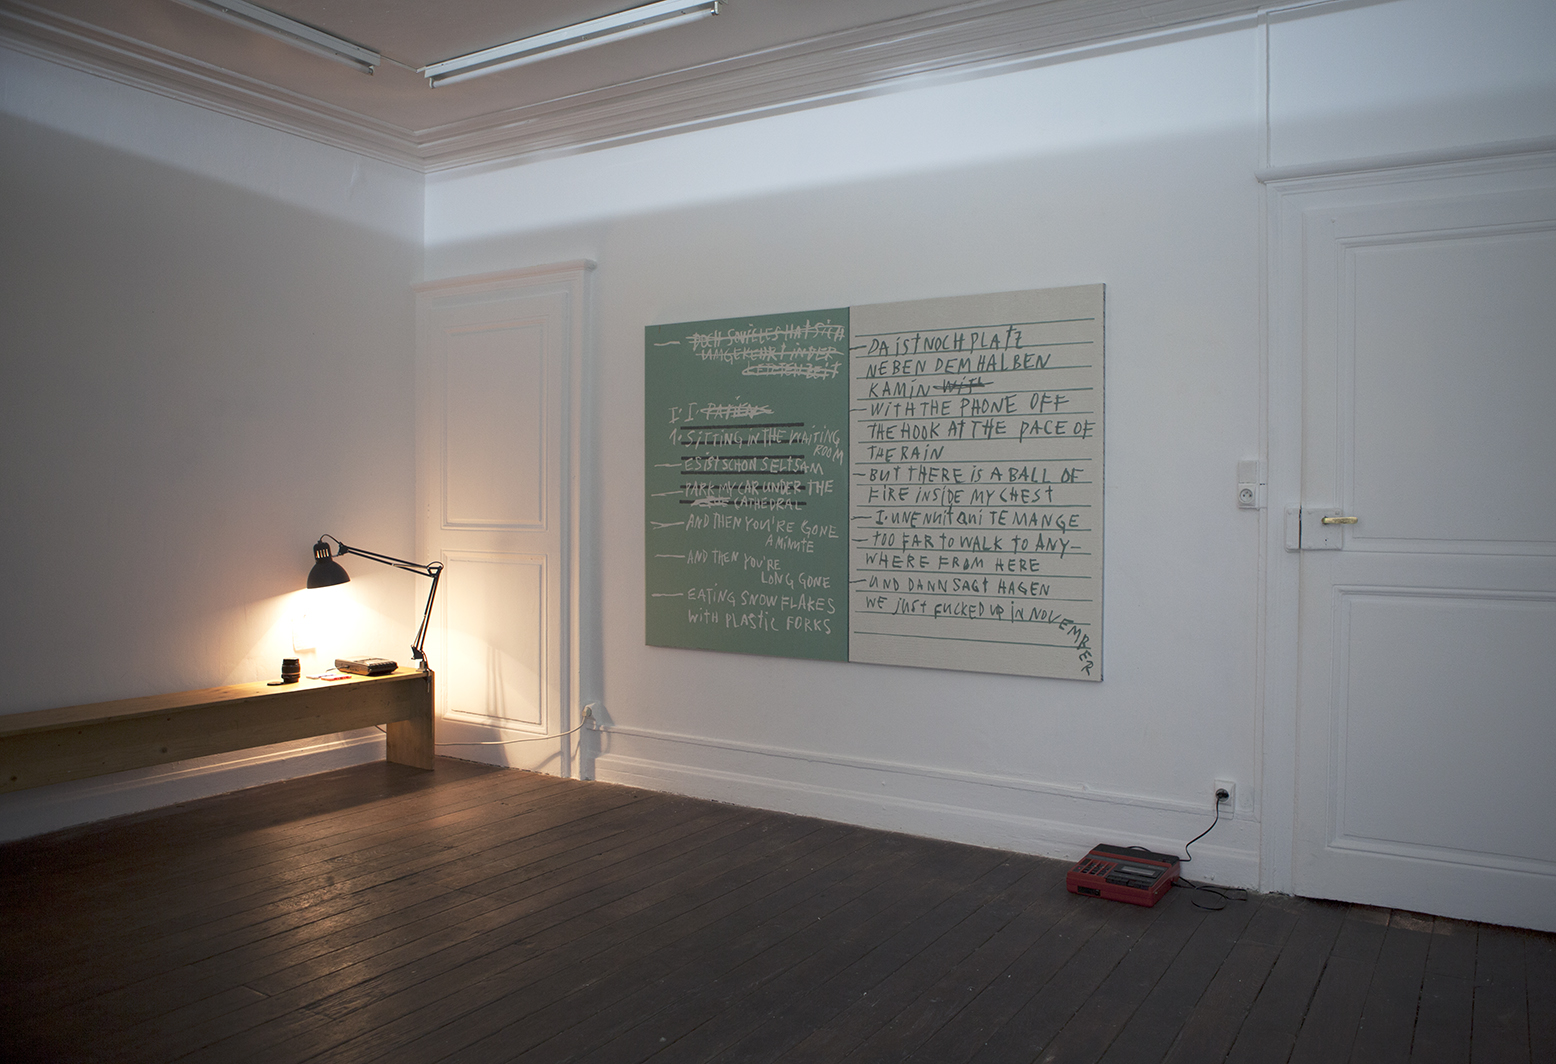 — DOCH SOVIELES HAT SICH
UMGEKEHRT IN DER
LETZTEN ZEIT
I. I.
1. SITTING IN THE WAITING
ROOM
— ES IST SCHON SELTSAM
— PARK MY CAR UNDER THE
CATHEDRAL
— AND THEN YOU'RE GONE
A MINUTE
— AND THEN YOU'RE
LONG GONE
— EATING SNOWFLAKES
WITH PLASTIC FORKS
— DA iST NOCH PLATZ
NEBEN DEM HALBEN
KAMiN WITH
— WITH THE PHONE OFF
THE HOOK AT THE PACE OF
THE RAIN
— BUT THERE IS A BALL OF
FIRE INSIDE MY CHEST
— I. UNE NUIT QUI TE MANGE
— TOO FAR TO WALK TO ANY-
WHERE FROM HERE
— UND DANN SAGT HAGEN
WE JUST FUCKED UP IN NOVEMBER